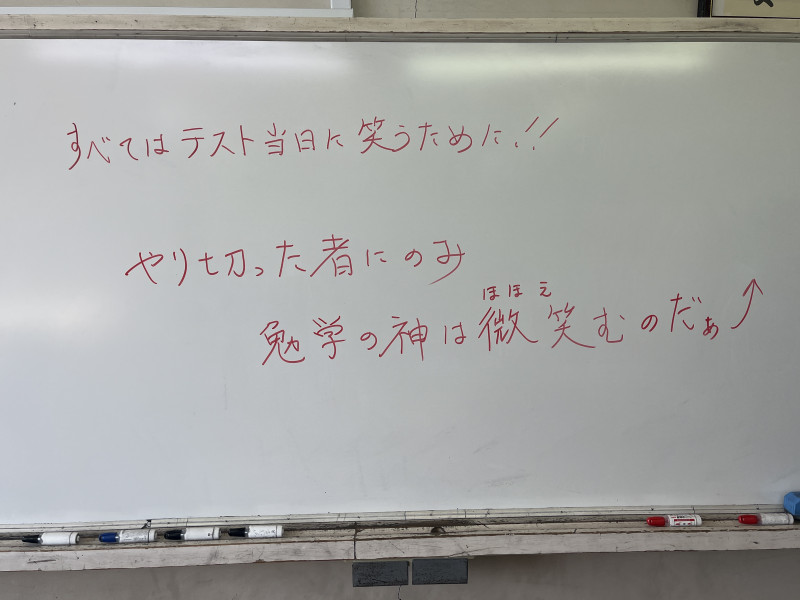 すべてはテスト当日に笑うために!!
やり切った者にのみ
ほほえ
勉学の神は微笑むのだぁ↗